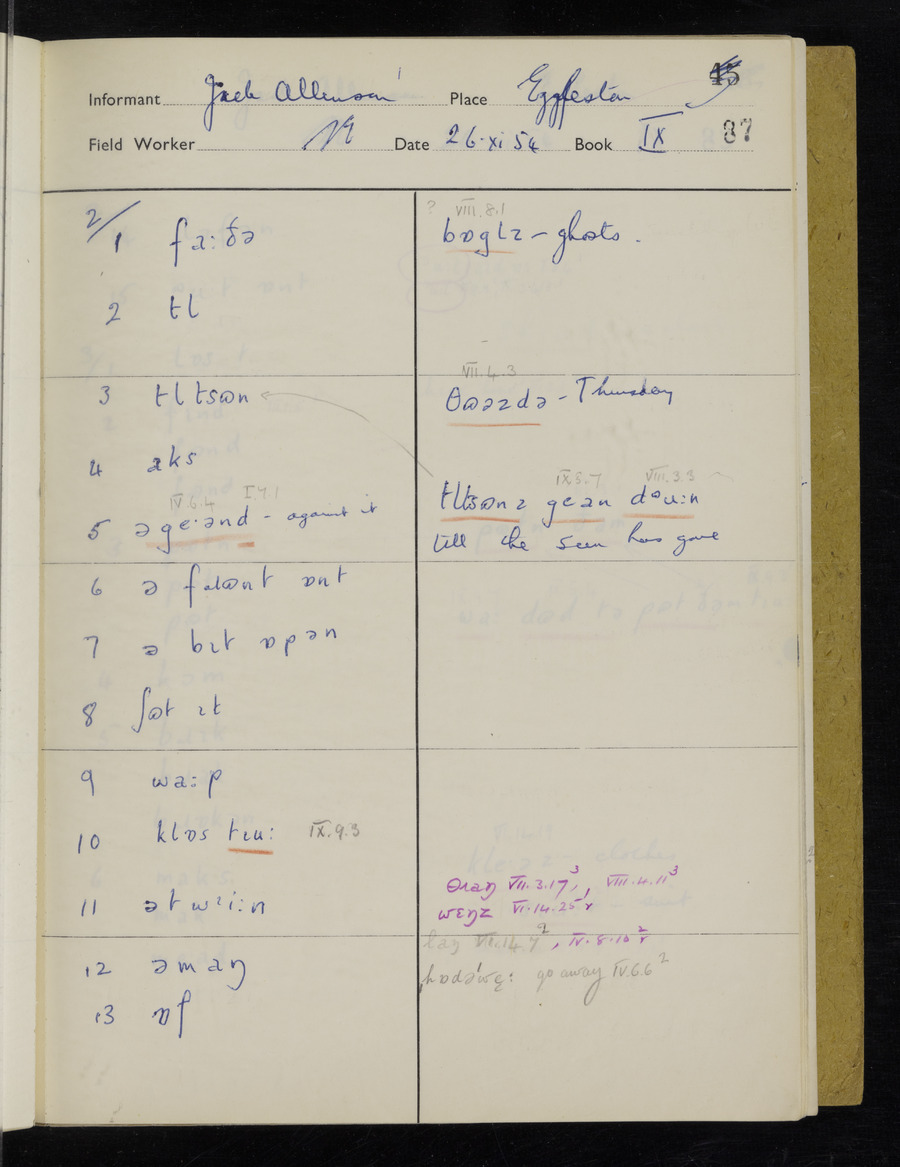 45
Informant Jack Allinson Place Eggleston
Field Worker Date 26·xi 54 Book IX 87
2/
1 fa:ðə
2 tɪ
3 tɪ tsɷn
4 aks
IV.6.4 I.7.1
5 əge·ənd - against it
6 ə fɹɷnt ɒnt
7 ə bɪt ɒpən
8 ʃɷt ɪt
9 wa:p
10 klɒs tɪu: IX.9.3
11 ətwi:n
12 əmaŋ
13 ɒf
? VIII.8.1
bɒglz - ghosts.
VII.4.3
θɷəzdə - Thursday
IX.5.7 VIII.3.3
tɪtsɷnz gean dəu:n
till the sun has gone
θɹaŋ VII.3.17³, VIII.4.11³
wɛŋz VI.14.25
laŋ VII.14.7², IV.8.10²
go away IV.6.6²